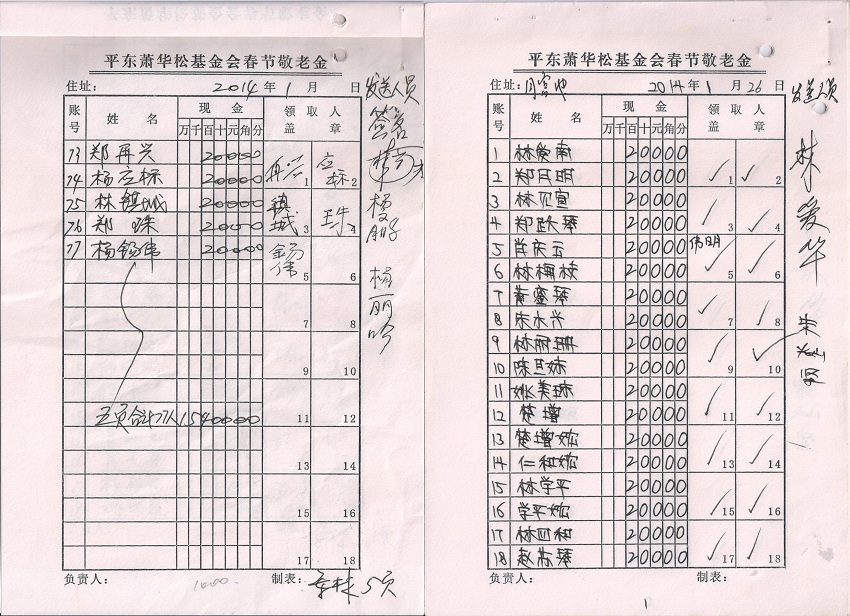 平东萧华松基金会春节敬老金
住址: 2014年1月 日
发送人员
签名
账号 姓名 现金 领取人
万千百十元角分 盖章
73 郑再兴 20000 再兴 1 应标 2
74 杨应标 20000
75 林镇城 20000 镇城 3 珠 4
76 郑珠 20000
77 杨锡伟 20000 锡伟 5 6
杨丽吟
7 8
9 10
五页合计77人 1540000 11 12
13 14
15 16
17 18
负责人: 制表: 5页
1000.
平东萧华松基金会春节敬老金
住址: 2014年1月26日
发送人员
账号 姓名 现金 领取人
万千百十元角分 盖章
1 林爱南 20000
2 郑月明 20000 1 2
3 林见宣 20000
4 郑跃琴 20000 3 4
5 肖庆云 20000 伟明
6 林梅枝 20000 5 6
7 黄銮琴 20000
8 宋水兴 20000 7 8
9 林丽珊 20000
10 陈旦妹 20000 9 10
11 姚美琼 20000
12 楚增 20000 11 12
13 楚增 20000
14 仁和 20000 13 14
15 林学平 20000
16 学平 20000 15 16
17 林四和 20000
18 赵 琴 20000 17 18
林爱华
负责人: 制表:
1